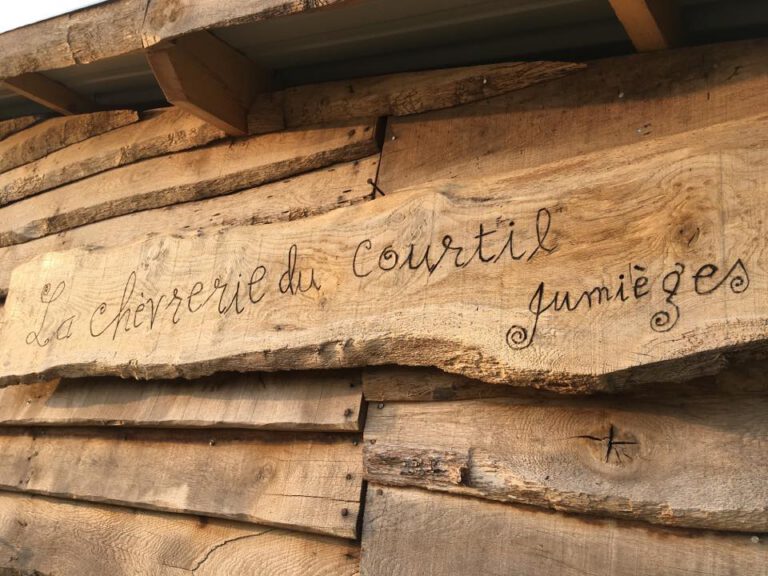 La chèvrerie du courtil
Jumièges